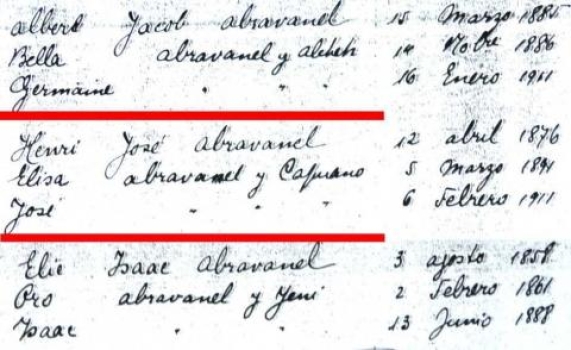 Albert Jacob Abravanel 15 Marzo 1885
Bella Abravanel y 14 Nobre 1886
Germaine " " " 16 Enero 1911
Henri José Abravanel 12 abril 1876
Elisa Abravanel y Capuano 5 Marzo 1891
José " " " 6 Febrero 1911
Elie Isaac Abravanel 3 agosto 1858
Oro Abravanel y Yeni 2 Febrero 1861
Isaac " " 13 Junio 1888